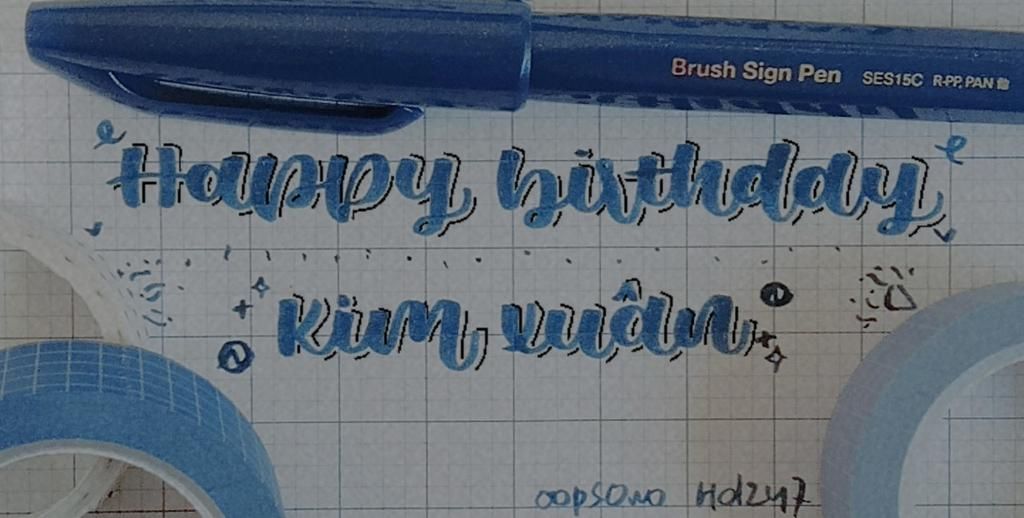 Brush Sign Pen SES15C R-PP, PAN
Happy birthday
Kim xuân